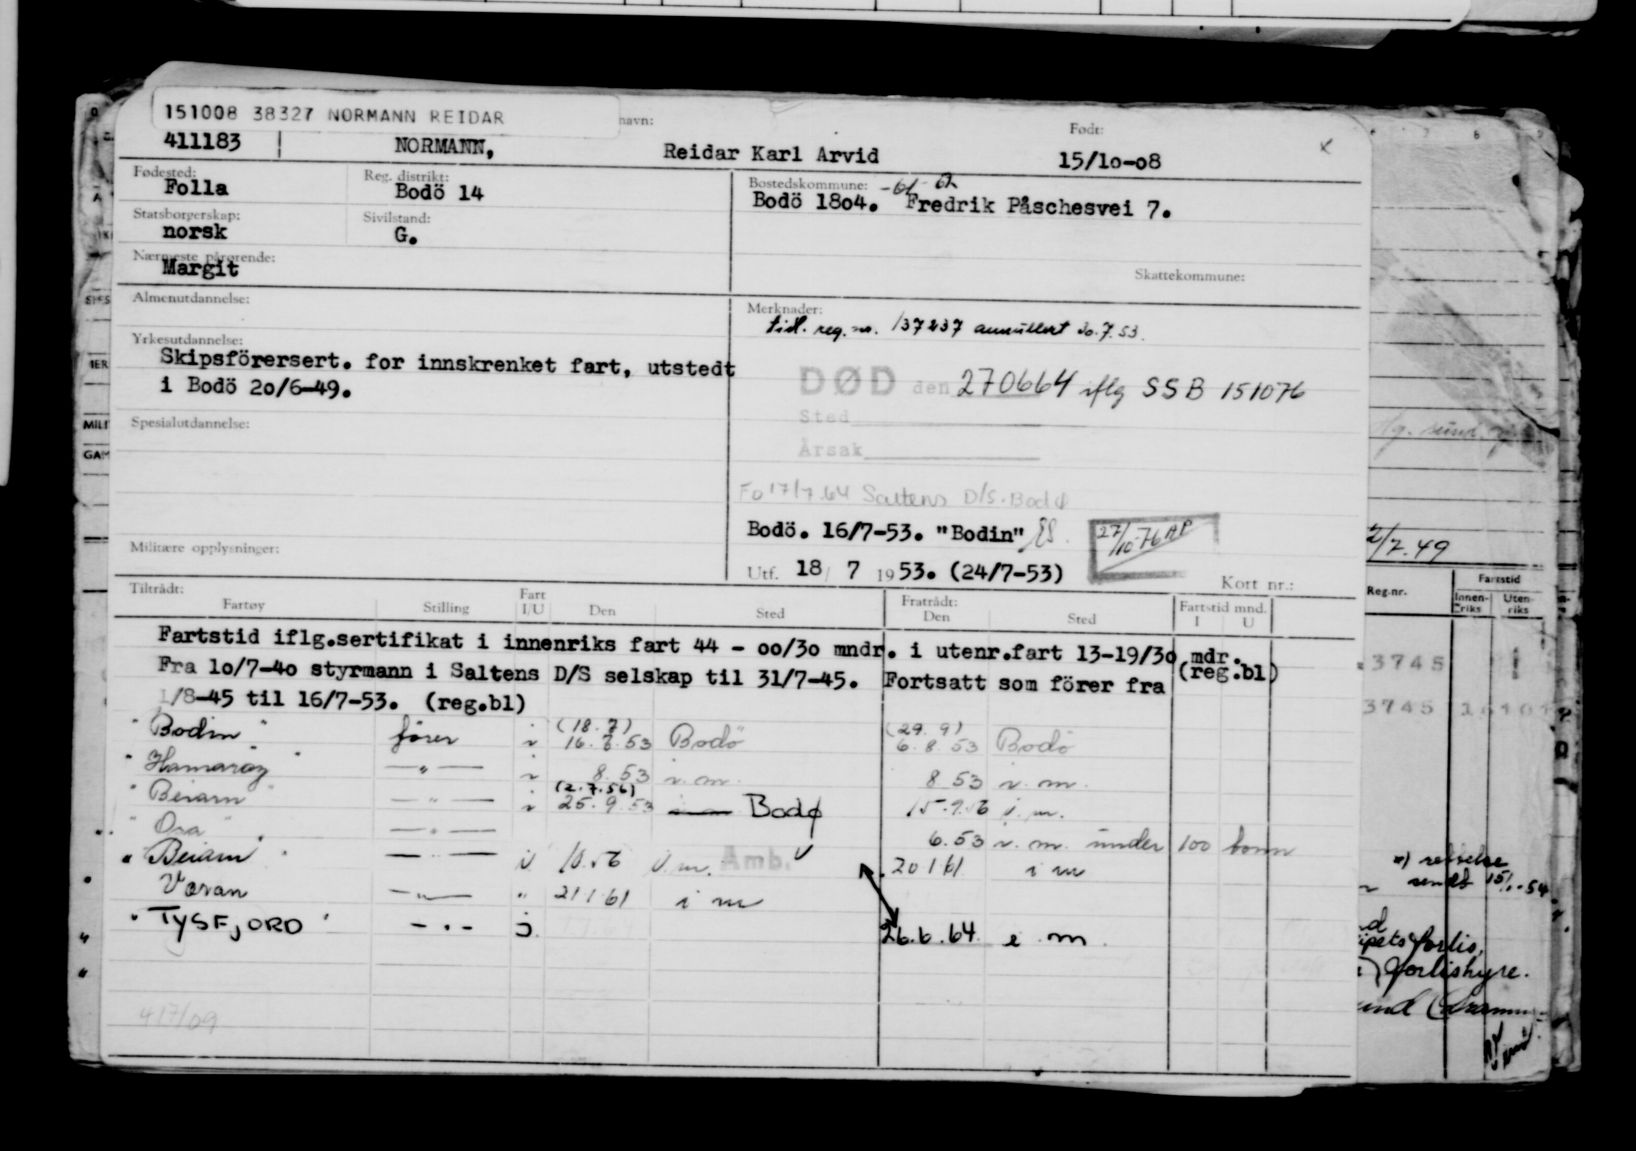 151008 38327 NORMANN REIDAR
navn:
Født:
411183 NORMANN, Reidar Karl Arvid 15/10-08
Fødested: Reg. distrikt: Bostedskommune: -61
Folla Bodö 14 Bodö 1804. Fredrik Påschesvei 7.
Statsborgerskap: Sivilstand:
norsk G.
Nærmeste pårørende:
Margit
Skattekommune:
Almenutdannelse: Merknader:
tidl. reg. nr. 137237 annullert 20.7.53.
Yrkesutdannelse:
Skipsförersert. for innskrenket fart, utstedt
i Bodö 20/6-49.
DØD den 270664 iflg SSB 151076
Sted
Årsak
Spesialutdannelse:
Fo 17/7.64 Saltens D/S. Bodø
Bodö. 16/7-53. "Bodin"
27/10-76 AP
Militære opplysninger:
Utf. 18/ 7 1953. (24/7-53)
Kort nr.:
Tiltrådt: Fratrådt:
Fartøy Stilling Fart I/U Den Sted Den Sted Fartstid mnd. I U
Fartstid iflg.sertifikat i innenriks fart 44 - 00/30 mndr. i utenr.fart 13-19/30 mdr.
(reg.bl)
Fra 10/7-40 styrmann i Saltens D/S selskap til 31/7-45. Fortsatt som förer fra
1/8-45 til 16/7-53. (reg.bl)
(18.7) (29.9)
"Bodin" fører i 16.7.53 Bodö 6.8.53 Bodö
"Hamarøy" -"- i 8.53 i.m. 8 53 i.m.
(2.7.56)
"Beiarn" -"- i 25.9.53 Bodø 15.9.56 i.m.
"Osa" -"- 6.53 i.m. under 100 tonn
"Beiarn" -"- i 10.56 i.m. Amb. 20 1 61 i m
Væran -"- " 21 1 61 i m
"TYSFJORD" -"- i. 26.6.64 i m.
417/09
2/7.49
Reg.nr. Fartstid
Innen-riks Uten-riks
3745
3745
forlis,
forlishyre.